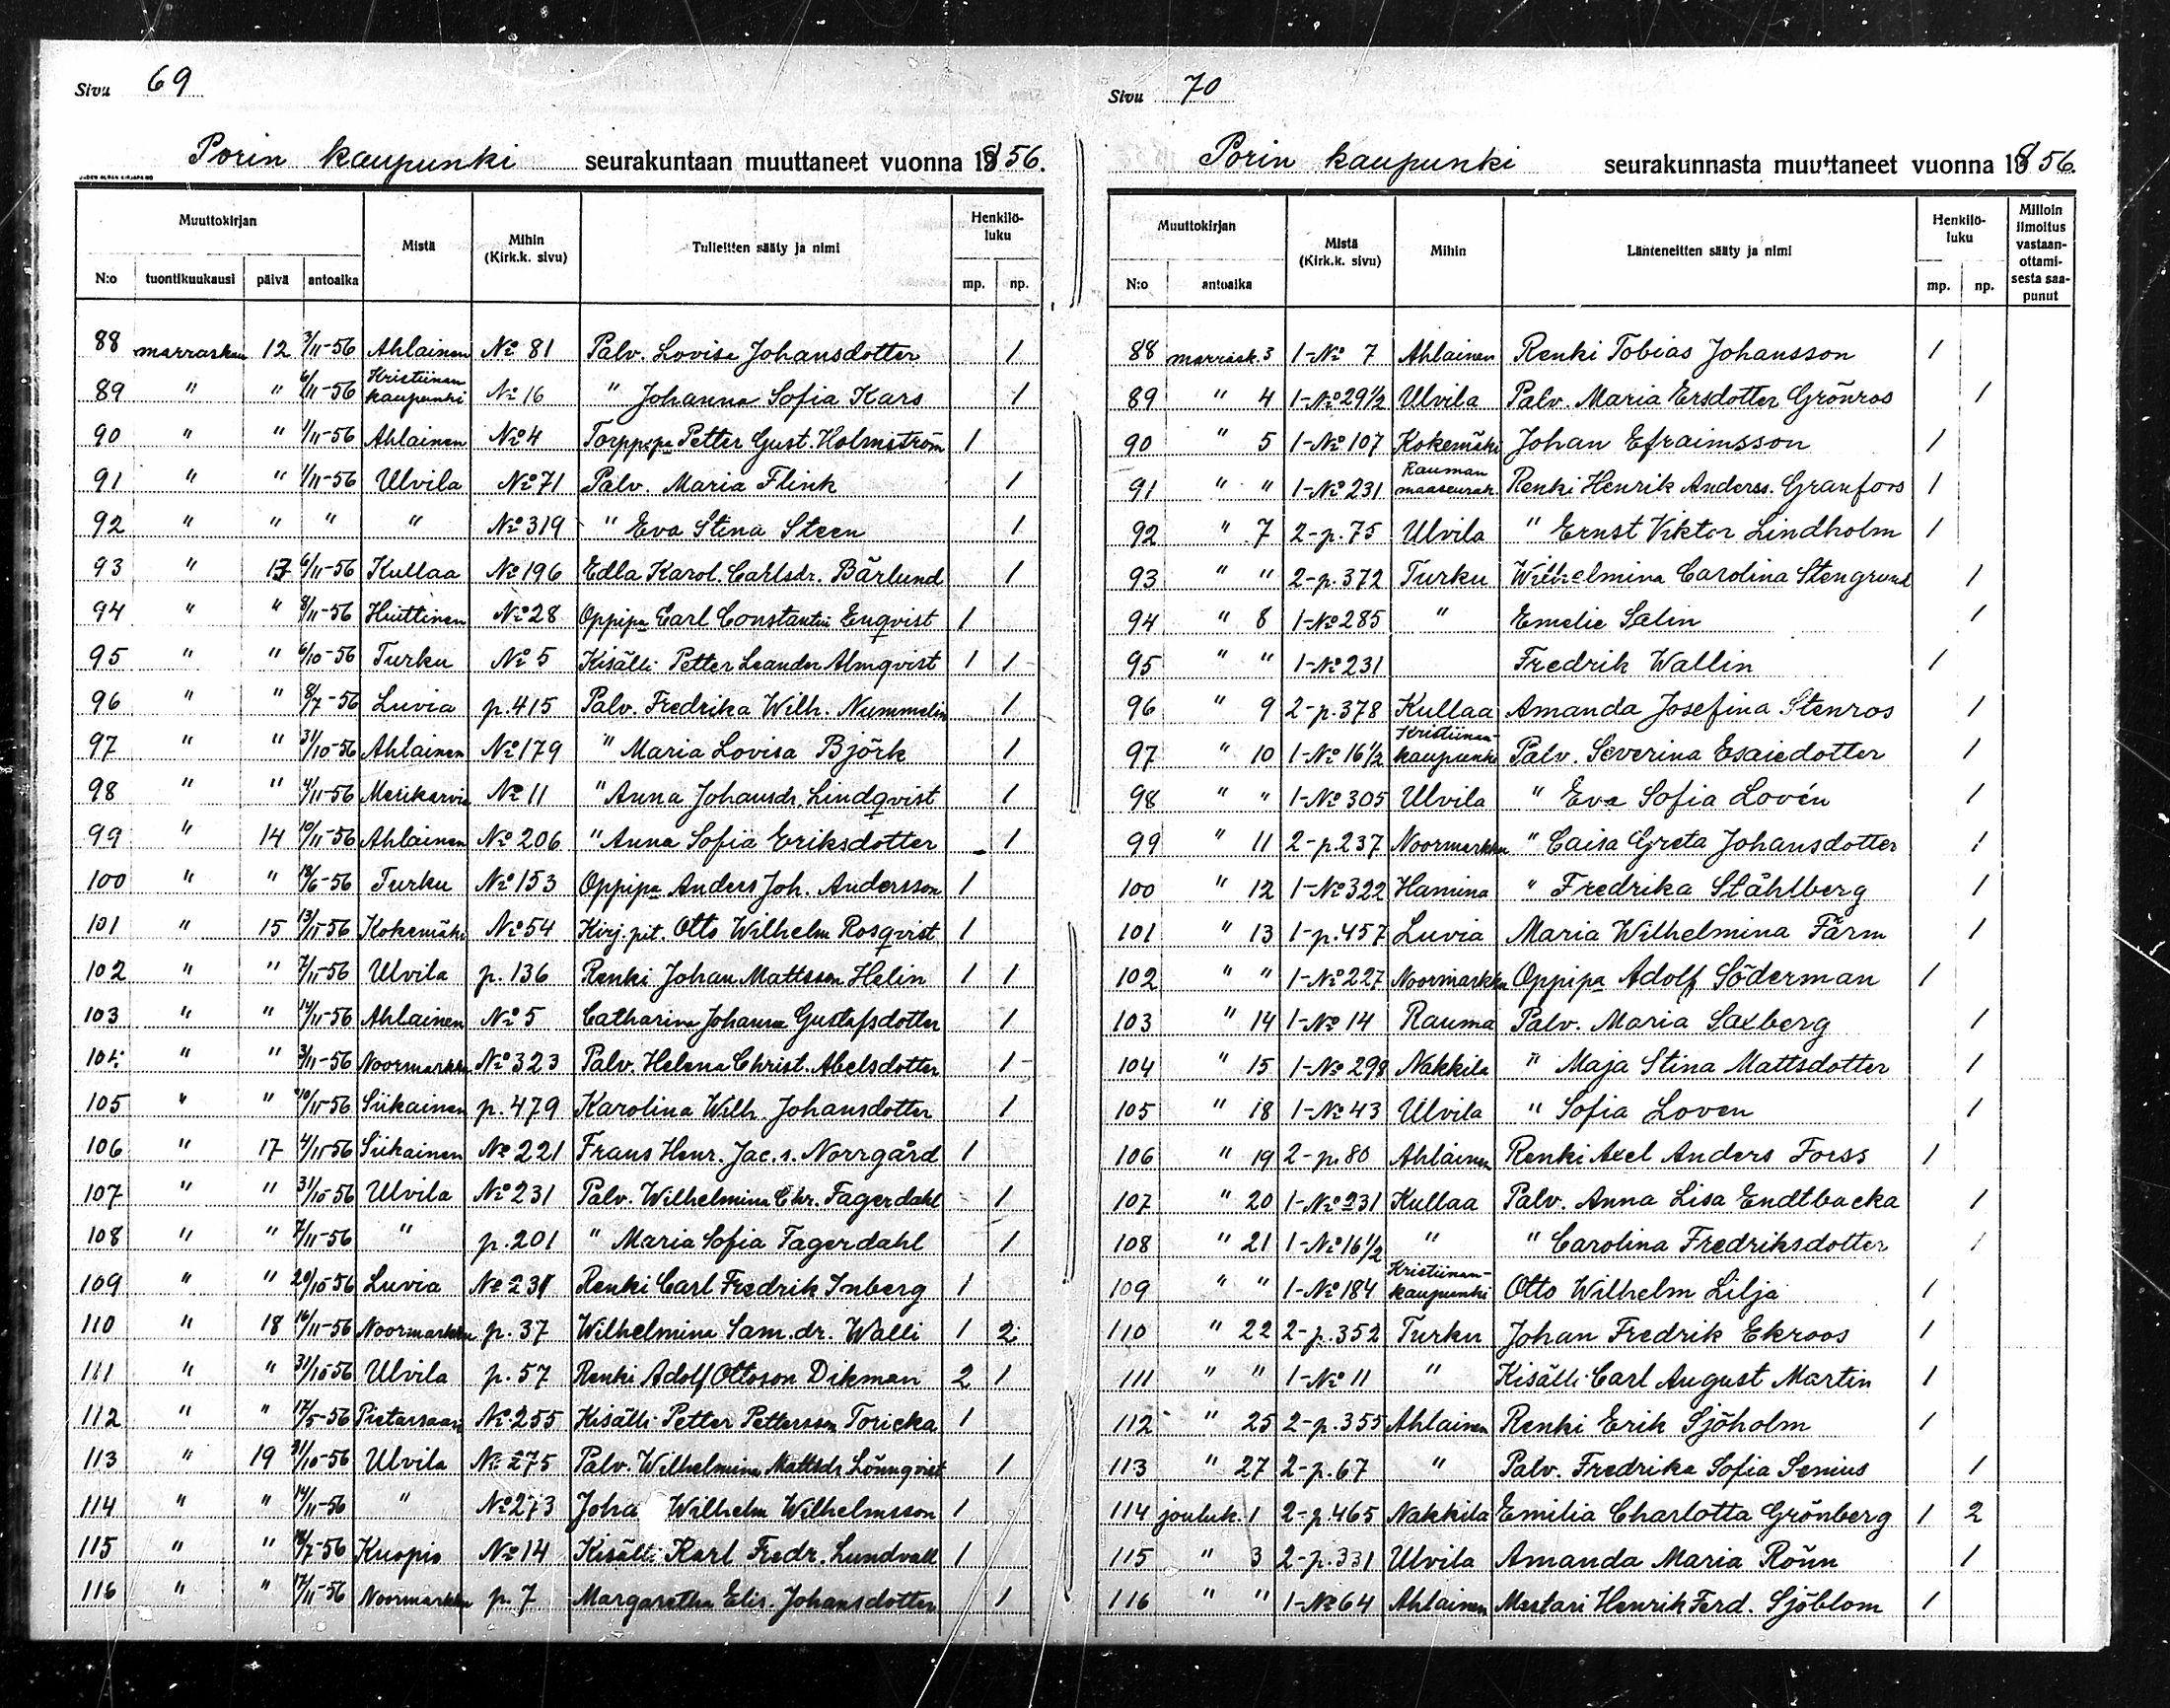 Sivu 69
Porin kaupunki seurakuntaan muuttaneet vuonna 1856.
Muuttokirjan Mistä Mihin (Kirk.k. sivu) Tulleitten sääty ja nimi Henkilö-luku
N:o tuontikuukausi päivä antoaika mp. np.
88 marraskuu 12 3/11-56 Ahlainen No 81 Palv. Lovisa Johansdotter 1
89 " " 6/11-56 Kristiinan kaupunki No 16 " Johanna Sofia Kars 1
90 " " 1/11-56 Ahlainen No 4 Torppipa Petter Gust. Holmström 1
91 " " 1/11-56 Ulvila No 71 Palv. Maria Flink 1
92 " " " " No 319 " Eva Stina Steen 1
93 " 13 6/11-56 Kullaa No 196 Edla Karol. Carlsdr. Bärlund 1
94 " " 8/11-56 Huittinen No 28 Oppipa Carl Constantin Enqvist 1
95 " " 6/10-56 Turku No 5 Kisälli Petter Leander Almqvist 1 1
96 " " 8/7-56 Luvia p. 415 Palv. Fredrika Wilh. Nummelin 1
97 " " 31/10-56 Ahlainen No 179 " Maria Lovisa Björk 1
98 " " 4/11-56 Merikarvia No 11 " Anna Johansdr. Lindqvist 1
99 " 14 10/11-56 Ahlainen No 206 " Anna Sofia Eriksdotter 1
100 " " 18/6-56 Turku No 153 Oppipa Anders Joh. Andersson 1
101 " 15 13/11-56 Kokemäki No 54 Kirj.pit. Otto Wilhelm Rosqvist 1
102 " " 7/11-56 Ulvila p. 136 Renki Johan Mattsson Helin 1 1
103 " " 14/11-56 Ahlainen No 5 Catharina Johanna Gustafsdotter 1
104 " " 3/11-56 Noormarkku No 323 Palv. Helena Christ. Abelsdotter 1
105 " " 10/11-56 Siikainen p. 479 Karolina Wilh. Johansdotter 1
106 " 17 4/11-56 Siikainen No 221 Frans Henr. Jac.s. Norrgård 1
107 " " 31/10-56 Ulvila No 231 Palv. Wilhelmina Chr. Fagerdahl 1
108 " " 7/11-56 " p. 201 " Maria Sofia Fagerdahl 1
109 " " 20/10-56 Luvia No 231 Renki Carl Fredrik Inberg 1
110 " 18 16/11-56 Noormarkku p. 37 Wilhelmina Sam.dr. Walli 1 2
111 " " 31/10-56 Ulvila p. 57 Renki Adolf Ottoson Dikman 2 1
112 " " 17/5-56 Pietarsaari No 255 Kisälli Petter Pettersson Toricka 1
113 " 19 31/10-56 Ulvila No 275 Palv. Wilhelmina Mattsdr. Lönnqvist 1
114 " " 14/11-56 " No 273 Joha Wilhelm Wilhelmsson 1
115 " " 18/7-56 Kuopio No 14 Kisälli Karl Fredr. Lundvall 1
116 " " 17/11-56 Noormarkku p. 7 Margaretha Elis. Johansdotter 1
Sivu 70
Porin kaupunki seurakunnasta muuttaneet vuonna 1856.
Muuttokirjan Mistä (Kirk.k. sivu) Mihin Lähteneitten sääty ja nimi Henkilö-luku Milloin ilmoitus vastaan-ottami-sesta saa-punut
N:o antoaika mp. np.
88 marrask. 3 1-No 7 Ahlainen Renki Tobias Johansson 1
89 " 4 1-No 29 1/2 Ulvila Palv. Maria Ersdotter Grönros 1
90 " 5 1-No 107 Kokemäki Johan Efraimsson 1
91 " " 1-No 231 Rauman maaseurak. Renki Henrik Anderss. Granfors 1
92 " 7 2-p. 75 Ulvila " Ernst Viktor Lindholm 1
93 " " 2-p. 372 Turku Wilhelmina Carolina Stengrund 1
94 " 8 1-No 285 " Emelie Salin 1
95 " " 1-No 231 Fredrik Wallin 1
96 " 9 2-p. 378 Kullaa Amanda Josefina Stenros 1
97 " 10 1-No 16 1/2 Kristiinan-kaupunki Palv. Severina Esaiedotter 1
98 " " 1-No 305 Ulvila " Eva Sofia Lovén 1
99 " 11 2-p. 237 Noormarkku " Caisa Greta Johansdotter 1
100 " 12 1-No 322 Hamina " Fredrika Ståhlberg 1
101 " 13 1-p. 457 Luvia Maria Wilhelmina Färm 1
102 " " 1-No 227 Noormarkku Oppipa Adolf Söderman 1
103 " 14 1-No 14 Rauma Palv. Maria Saxberg 1
104 " 15 1-No 298 Nakkila " Maja Stina Mattsdotter 1
105 " 18 1-No 43 Ulvila " Sofia Loven 1
106 " 19 2-p. 80 Ahlainen Renki Axel Anders Forss 1
107 " 20 1-No 231 Kullaa Palv. Anna Lisa Endtbacka 1
108 " 21 1-No 16 1/2 " " Carolina Fredriksdotter 1
109 " " 1-No 184 Kristiinan-kaupunki Otto Wilhelm Lilja 1
110 " 22 2-p. 352 Turku Johan Fredrik Ekroos 1
111 " " 1-No 11 " Kisälli Carl August Martin 1
112 " 25 2-p. 355 Ahlainen Renki Erik Sjöholm 1
113 " 27 2-p. 67 " Palv. Fredrika Sofia Senius 1
114 jouluk. 1 2-p. 465 Nakkila Emilia Charlotta Grönberg 1 2
115 " 3 2-p. 331 Ulvila Amanda Maria Rönn 1
116 " " 1-No 64 Ahlainen Mestari Henrik Ferd. Sjöblom 1